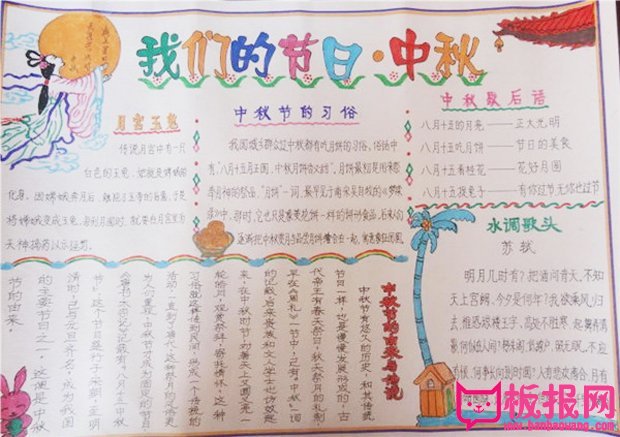 我们的节日·中秋
月宫玉兔
传说月宫中有一只
白色的玉兔,她就是嫦娥的
化身。因嫦娥奔月后,触犯了玉帝的旨意,于是
将嫦娥变成玉兔,每到月圆时,就要在月宫里为
天神捣药以示惩罚。
中秋节的习俗
我国城乡群众过中秋都有吃月饼的习俗,俗话中
有:"八月十五月正圆,中秋月饼香又甜"。月饼最初是用来祭
奉月神的祭品,"月饼"一词,最早见于南宋吴自牧的《梦粱
录》中,那时,它也只是像菱花饼一样的饼形食品。后来人们
逐渐把中秋赏月与品尝月饼结合在一起,寓意家人团圆
中秋歇后语
八月十五的月亮——正大光明
八月十五吃月饼——节日的美食
八月十五看桂花——花好月圆
八月十五捉兔子——有你过节无你也过节
水调歌头
苏轼
明月几时有?把酒问青天。不知
天上宫阙,今夕是何年?我欲乘风归
去,惟恐琼楼玉宇,高处不胜寒。起舞弄清
影,何似在人间?转朱阁,低绮户,照无眠。不应
有恨,何事长向别时圆?人有悲欢离合,月有
中秋节的由来与传说
中秋节有悠久的历史,和其他传统
节日一样,也是慢慢发展形成的,古
代帝王有春天祭日,秋天祭月的礼制,
早在《周礼》一书中,已有"中秋"一词
的记载。后来贵族和文人学士也仿效起
来,在中秋时节,对着天上又亮又圆一
轮皓月,观赏祭拜,寄托情怀,这种
习俗就这样传到民间,形成一个传统的
活动,一直到了唐代,这种祭月的风俗更
为人们重视,中秋节才成为固定的节日,
《唐书·太宗记》记载有"八月十五中秋
节",这个节日盛行于宋朝,至明
清时,已与元旦齐名,成为我国
的主要节日之一。这便是中秋
节的由来。
板报网
www.banbaowang.com